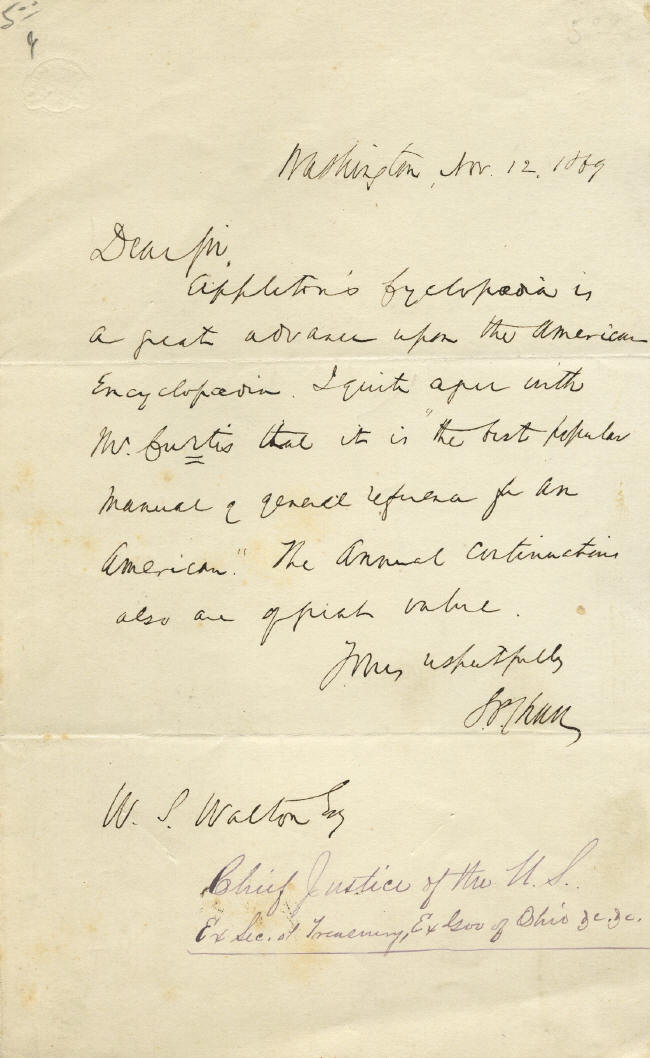 5
Washington, Nov. 12, 1869
Dear Sir,
Appleton's Cyclopædia is
a great advance upon the American
Encyclopædia. I quite agree with
Mr. Curtis that it is "the best popular
manual of general reference for an
American." The Annual Continuations
also are of great value.
Yours respectfully
S.P. Chase
W. S. Walton Esq
Chief Justice of the U.S.
Ex Sec. of Treasury, Ex Gov of Ohio &c. &c.